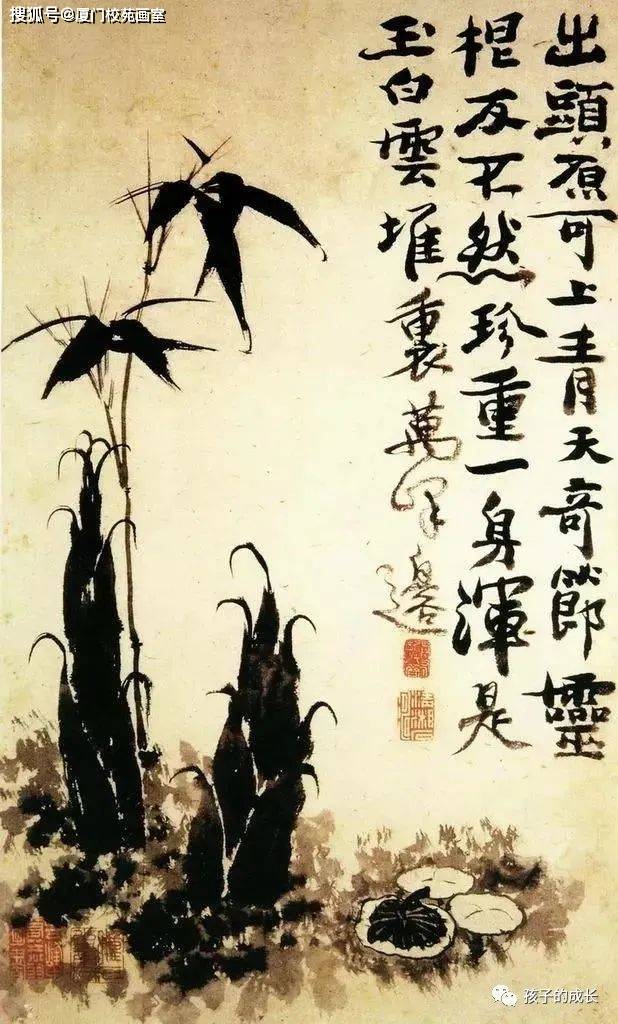 搜狐号@厦门校苑画室
出頭原可上青天奇節靈
根反不然珍重一身渾是
玉白雲堆裏萬峯邊
孩子的成长